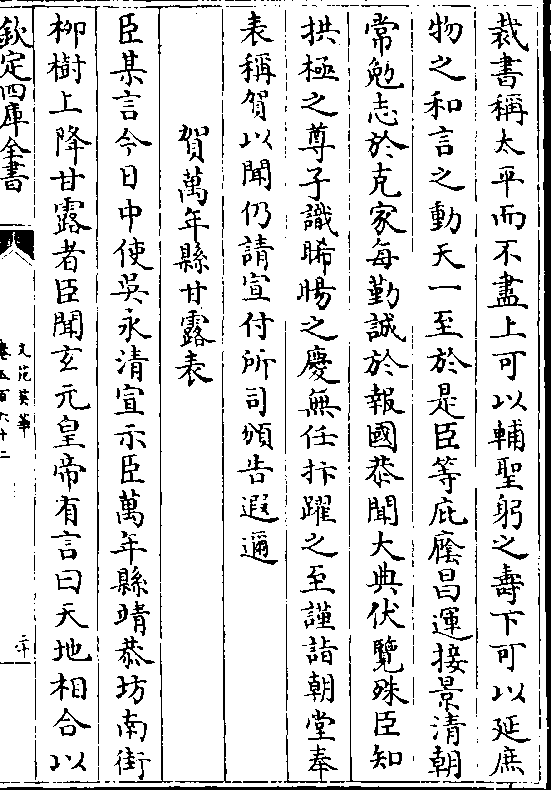 裁書稱太平而不盡上可以輔聖躬之壽下可以延庶
物之和言之動天一至於是臣等庇廕昌運接景清朝
常勉志於克家每勤誠於報國恭聞大典伏覽殊臣知
拱極之尊子識晞暘之慶無任抃躍之至謹詣朝堂奉
表稱賀以聞仍請宣付所司頒告遐邇
賀萬年縣甘露表
臣某言今日中使吳永清宣示臣萬年縣靖恭坊南街
柳樹上降甘露者臣聞玄元皇帝有言曰天地相合以
欽定四庫全書
文苑英華
卷五百六十二
二十